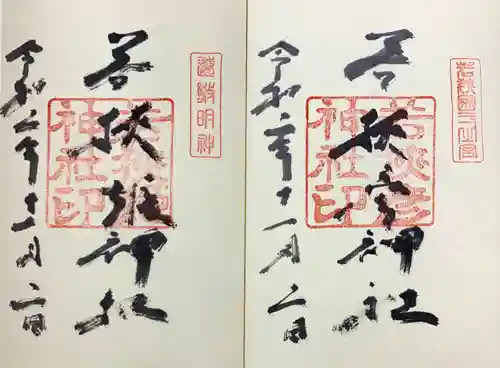 若狭國一之宮
若狭彦神社
若狭彦
神社印
令和二年十一月二日
遠敷明神
若狭姫神社
神社印
令和二年十一月二日